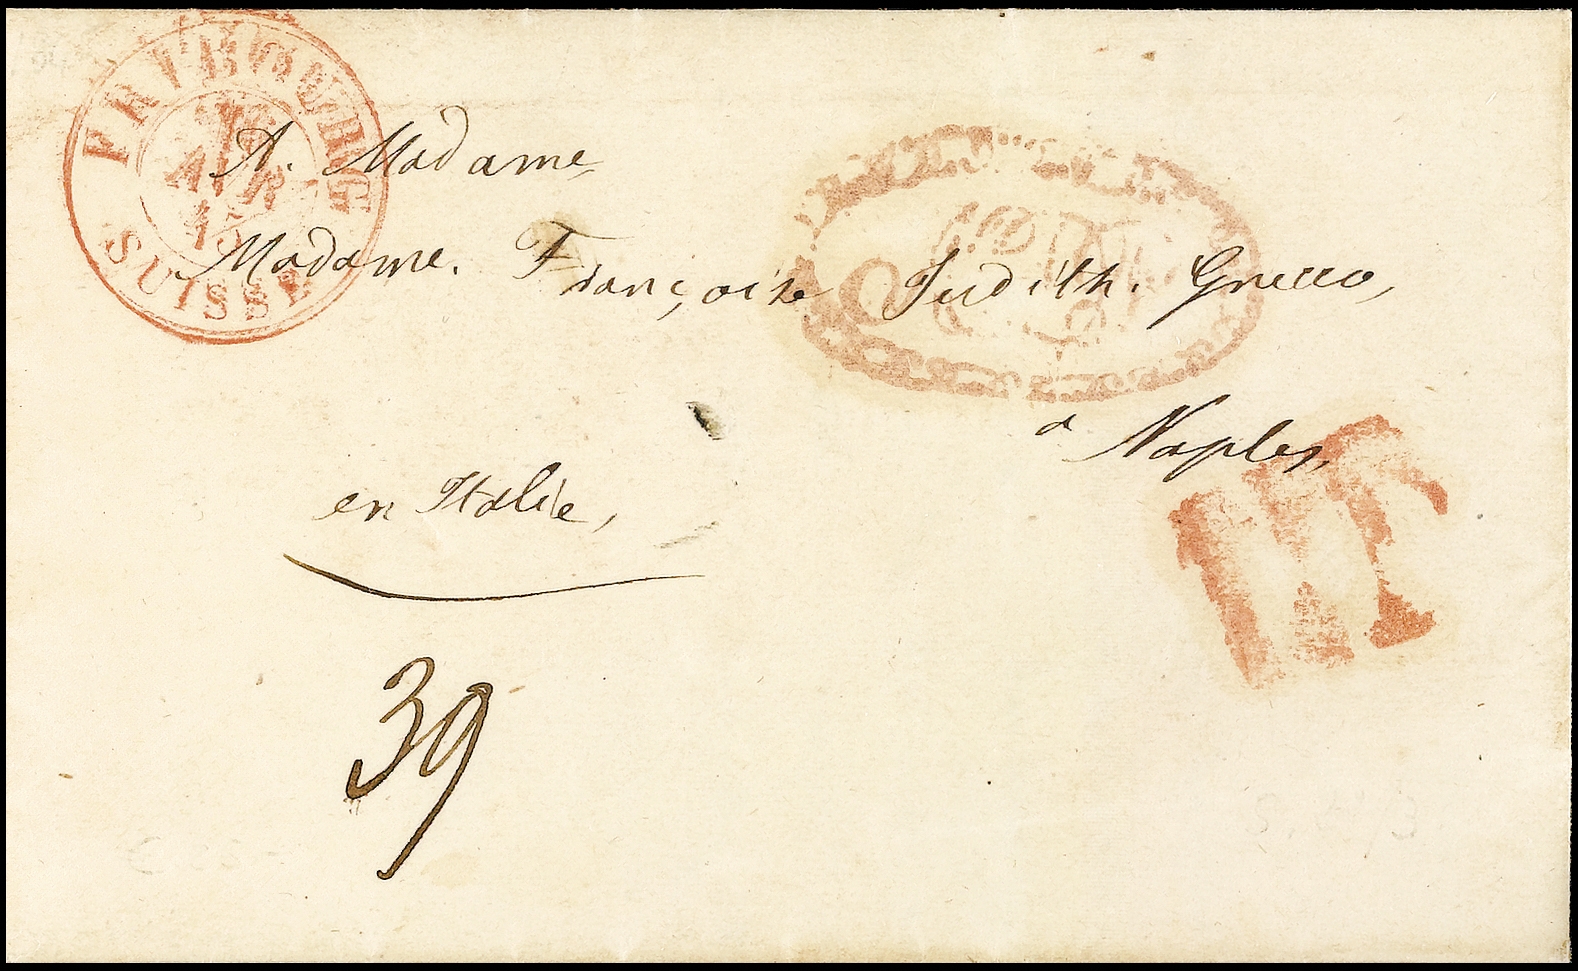 FRIBOURG
SUISSE
AVR
A. Madame,
Madame. Françoise Judith. Grecco,
a Naples,
en Italie,
39